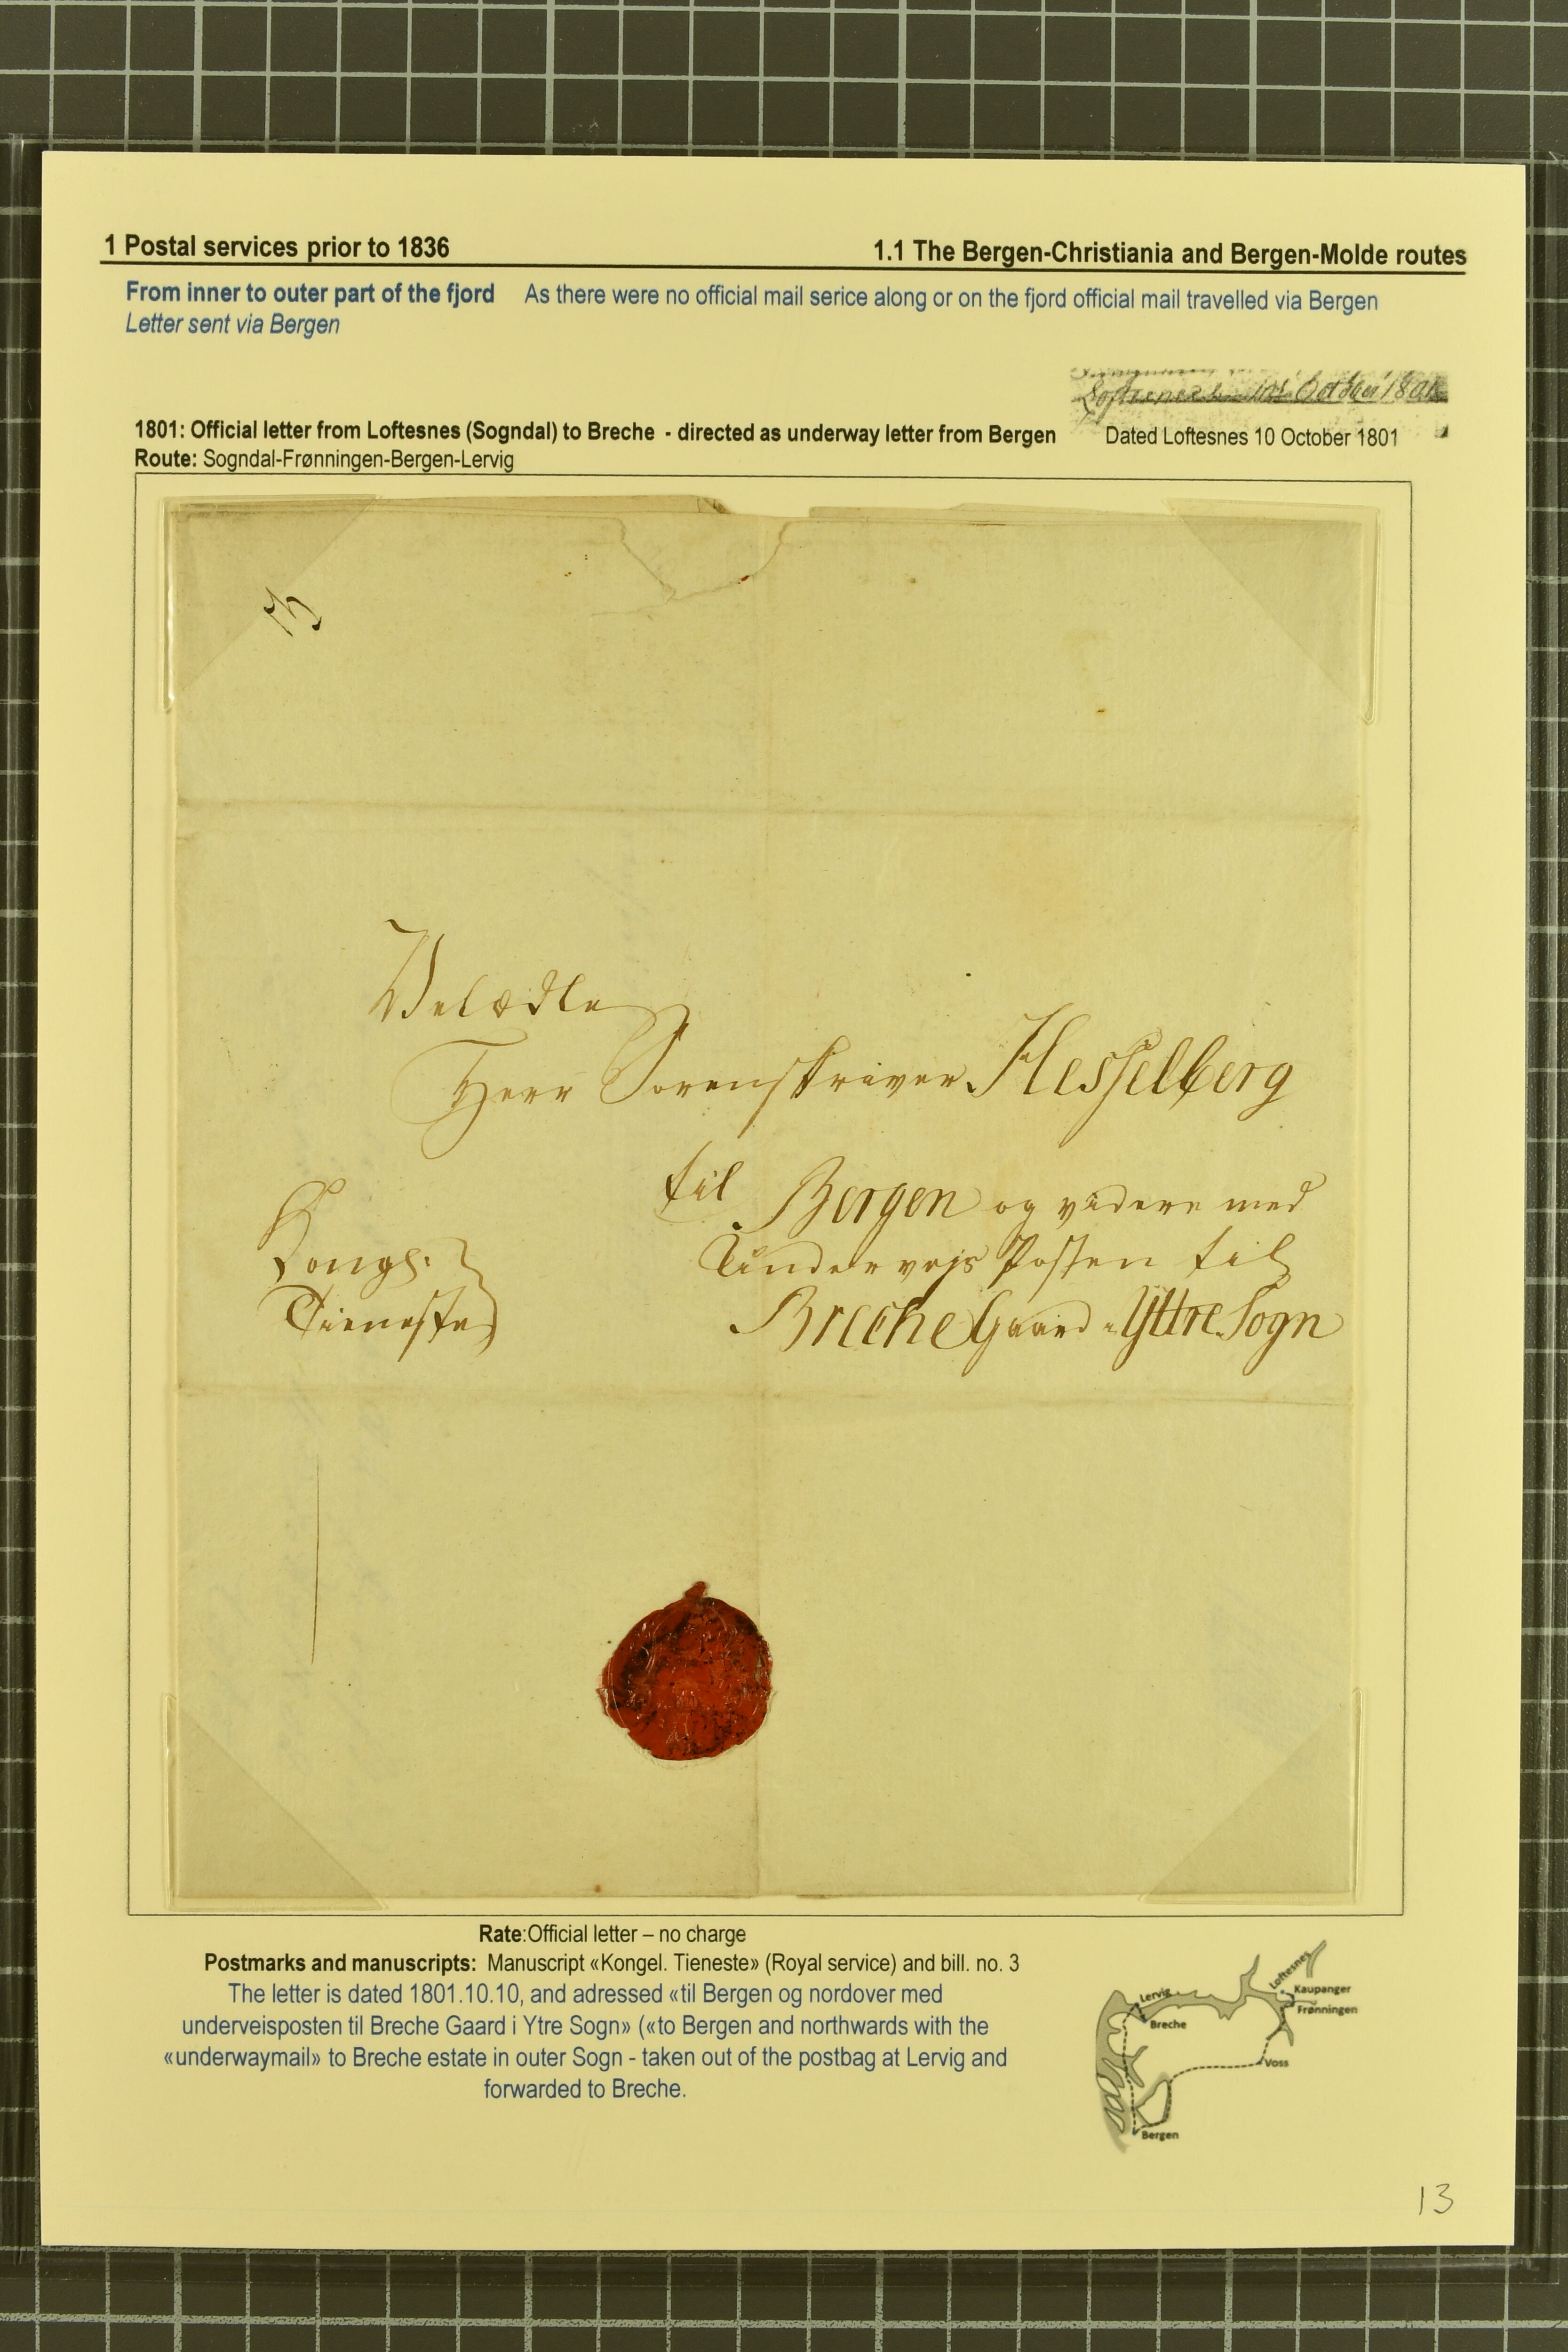 1 Postal services prior to 1836
1.1 The Bergen-Christiania and Bergen-Molde routes
From inner to outer part of the fjord As there were no official mail serice along or on the fjord official mail travelled via Bergen
Letter sent via Bergen
October 1801
1801: Official letter from Loftesnes (Sogndal) to Breche - directed as underway letter from Bergen
Dated Loftesnes 10 October 1801
Route: Sogndal-Frønningen-Bergen-Lervig
3
Velædle
Herr Sorenskriver Hesselberg
til Bergen og videre med
Kongl:
Undervejs Posten til
Tieneste
Breche Gaard i Yttre Sogn
Rate:Official letter – no charge
Postmarks and manuscripts: Manuscript «Kongel. Tieneste» (Royal service) and bill. no. 3
The letter is dated 1801.10.10, and adressed «til Bergen og nordover med
underveisposten til Breche Gaard i Ytre Sogn» («to Bergen and northwards with the
«underwaymail» to Breche estate in outer Sogn - taken out of the postbag at Lervig and
forwarded to Breche.
Loftesnes
Lervig
Kaupanger
Frønningen
Breche
Voss
Bergen
13